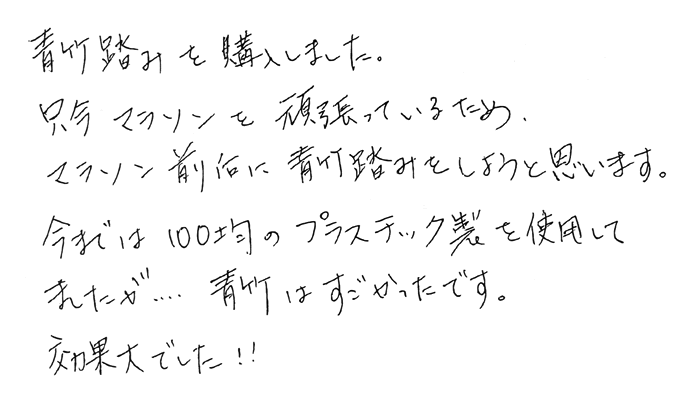 青竹踏みを購入しました。
只今マラソンを頑張っているため、
マラソン前后に青竹踏みをしようと思います。
今までは100均のプラスチック製を使用して
ましたが.... 青竹はすごかったです。
効果大でした!!